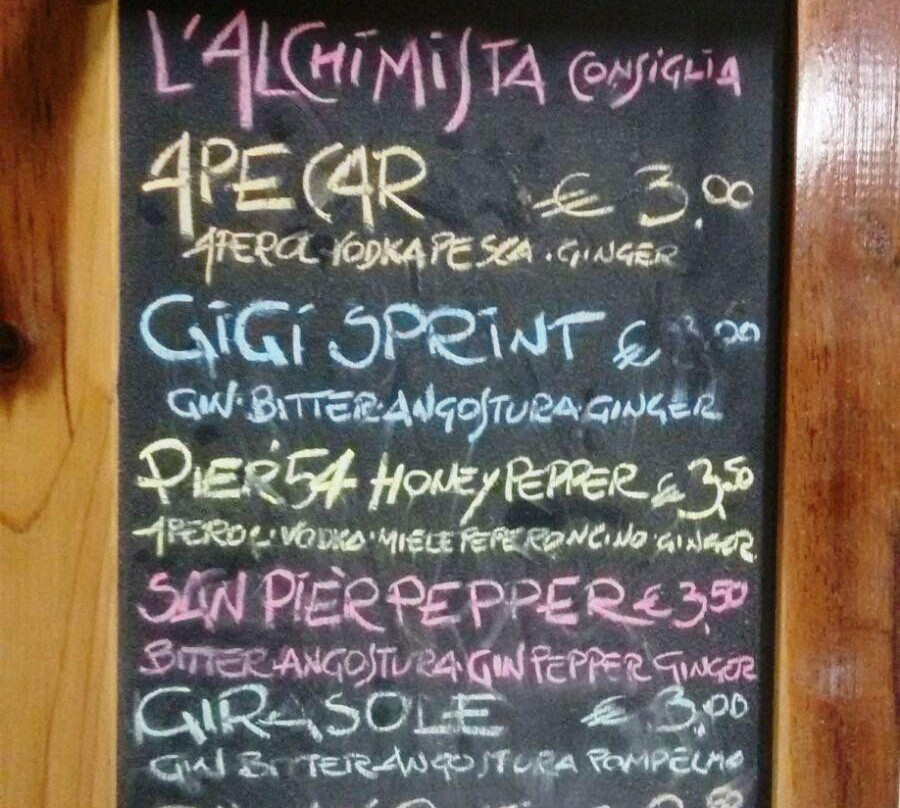 L'ALCHIMISTA CONSIGLIA
APE CAR € 3,00
APEROL VODKA PESCA · GINGER
GIGI SPRINT € 3,00
GIN · BITTER · ANGOSTURA · GINGER
PIER'54 HONEY PEPPER € 3,50
APEROL · VODKA · MIELE PEPERONCINO · GINGER
SAN PIÈR PEPPER € 3,50
BITTER · ANGOSTURA · GIN PEPPER GINGER
GIRASOLE € 3,00
GIN BITTER ANGOSTURA POMPELMO